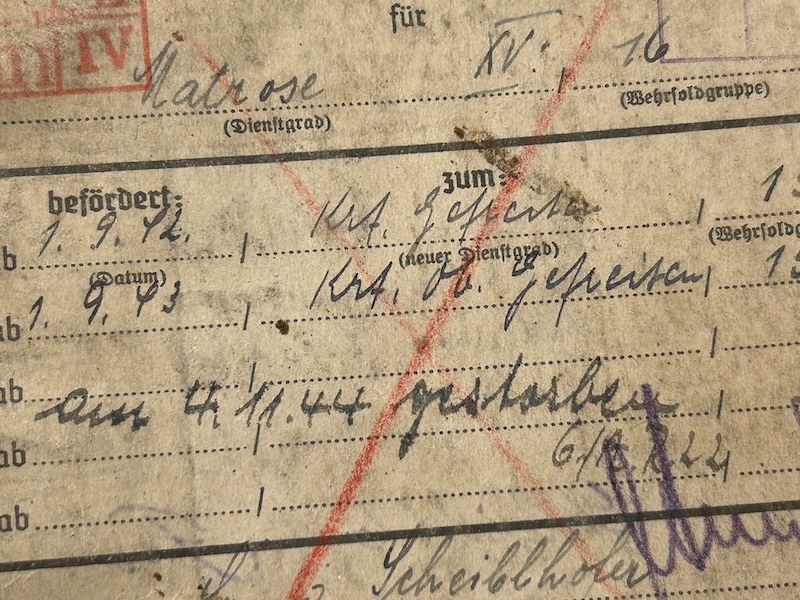 für
IV
Matrose XV. 16
(Dienstgrad) (Wehrsoldgruppe)
befördert: zum:
ab 1. 9. 42. Krf. Gefreiten
(Datum) (neuer Dienstgrad) (Wehrsoldg
ab 1. 9. 43 Krf. Ob. Gefreiten
ab
am 4. 11. 44 gestorben
ab
ab
Scheiblhofer